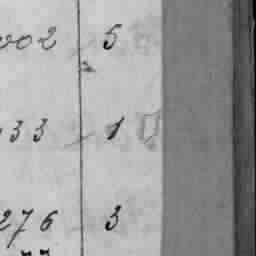 002 5
33 1
276 3